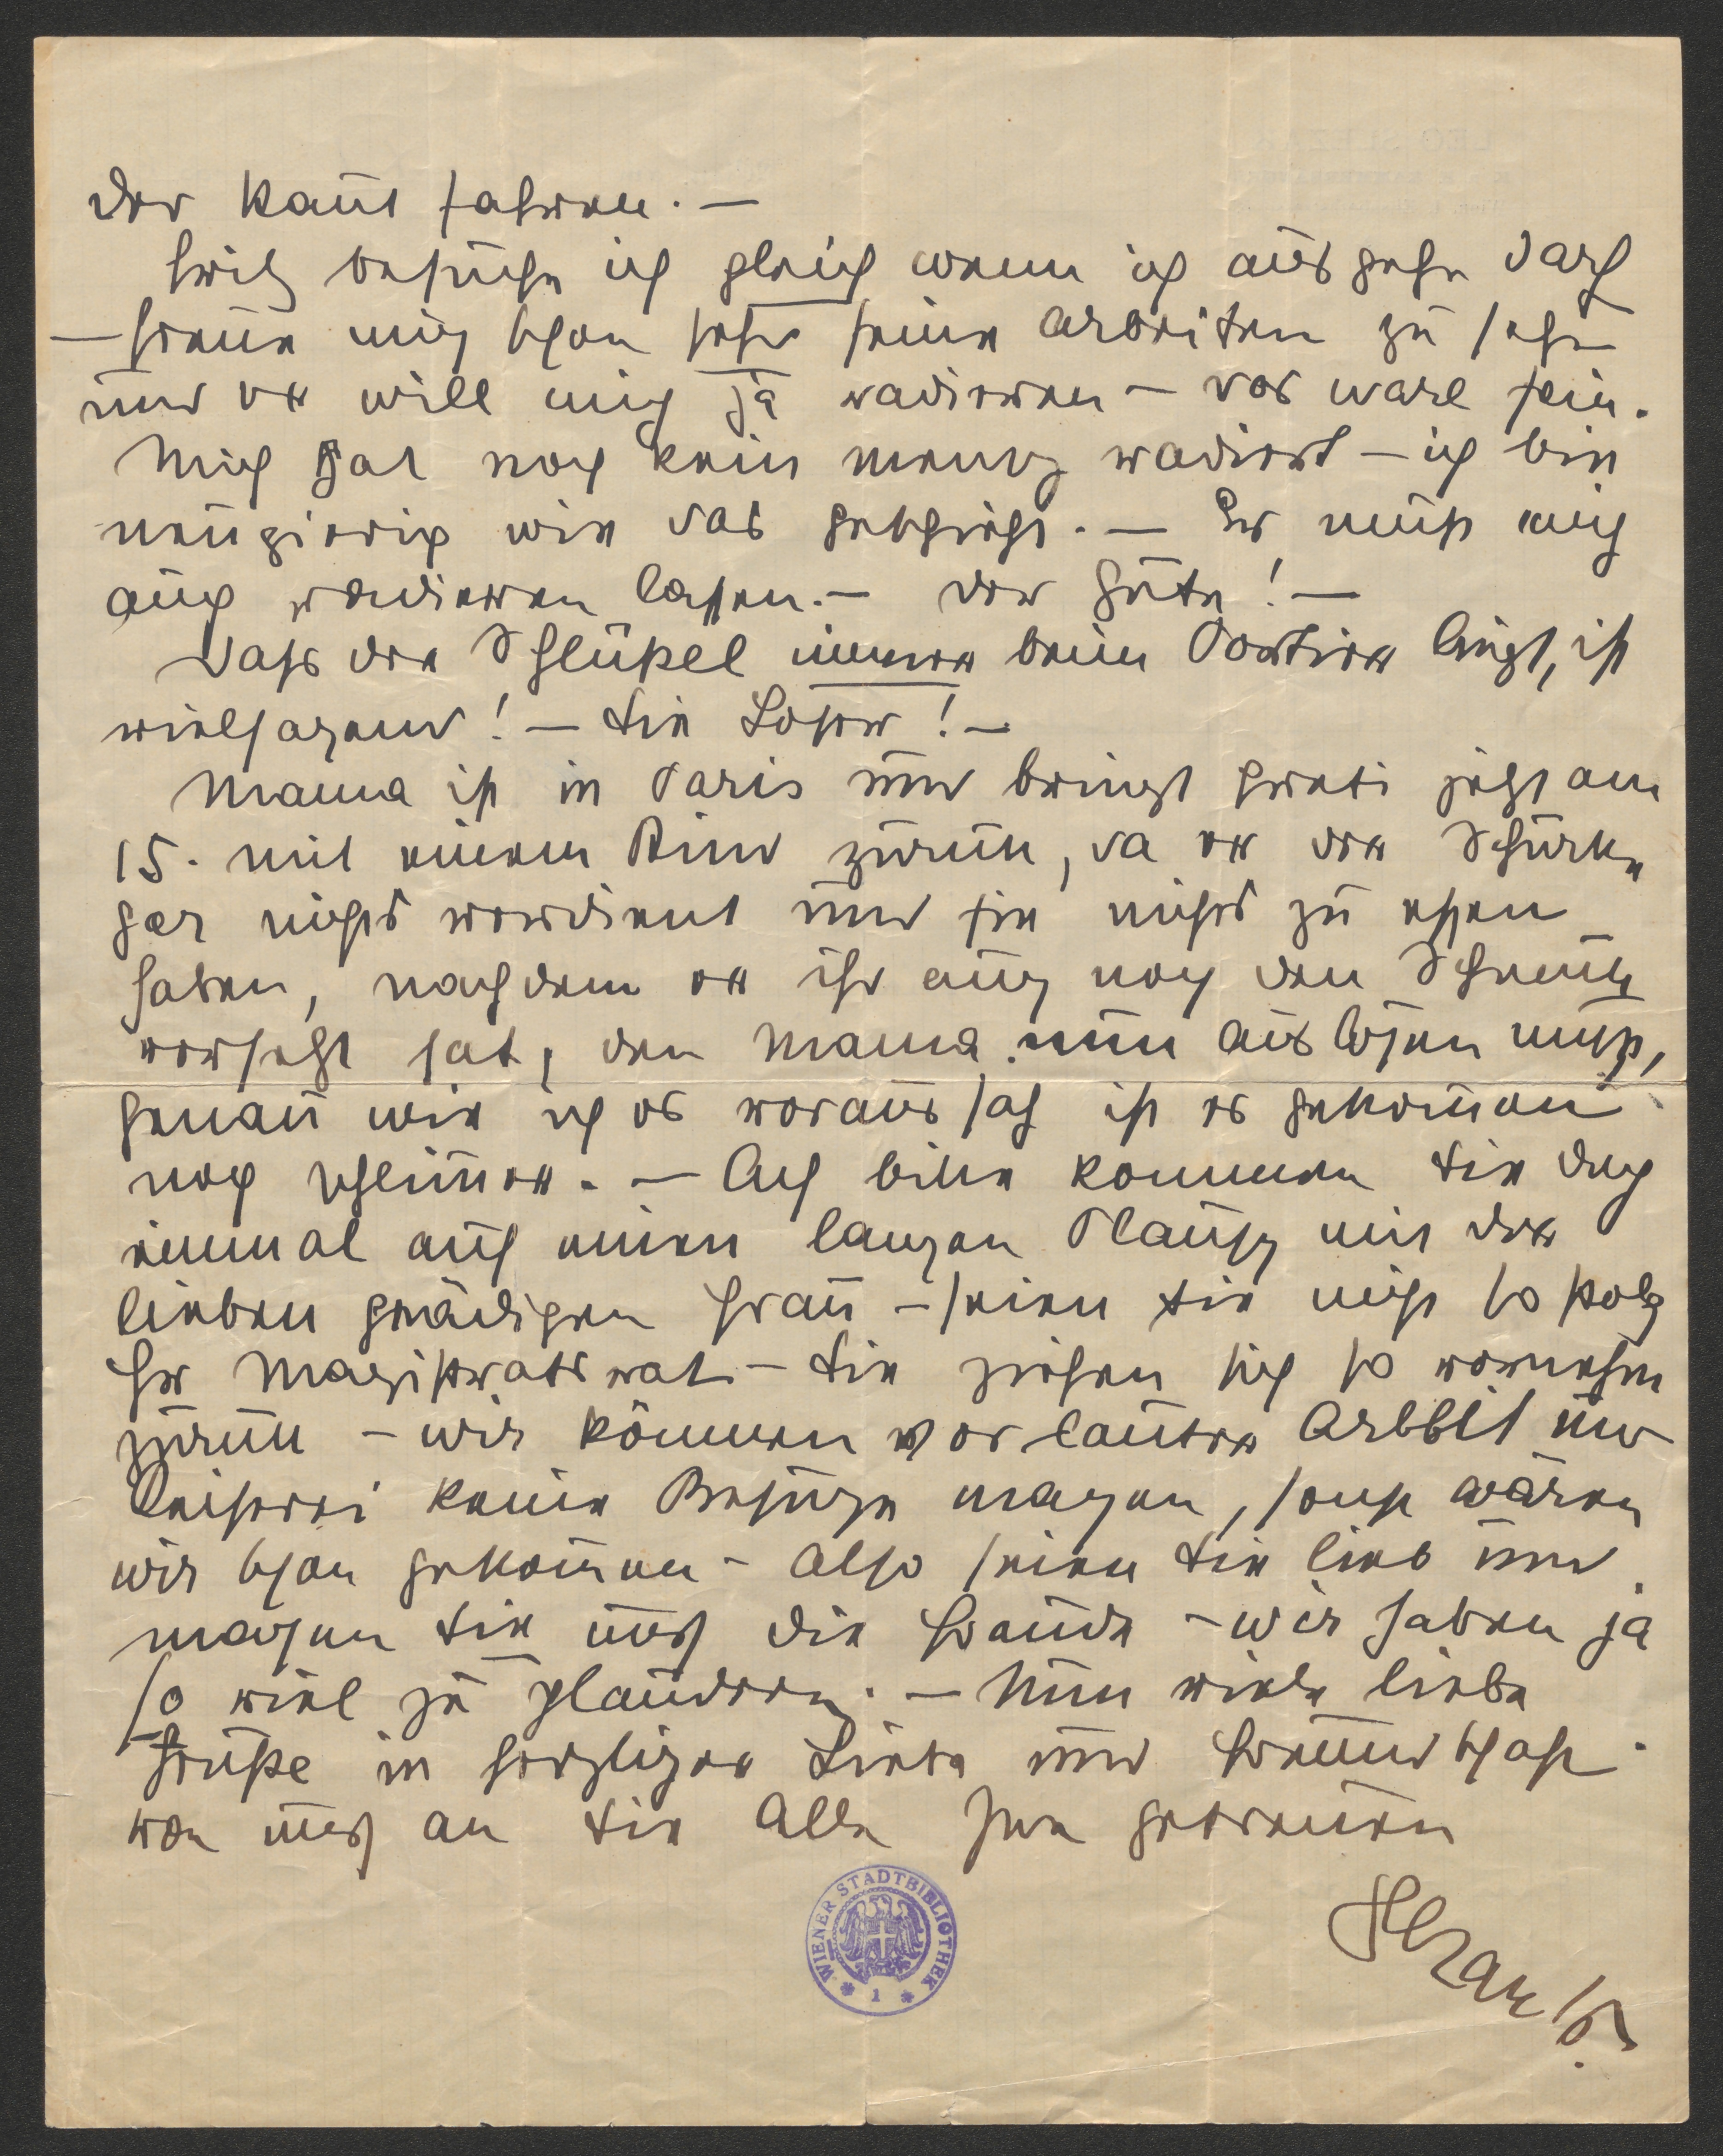 der kaūt fahren. —
Fritz besuche ich gleich wenn ich ausgehn darf
— freue mich schon sehr seine Arbeiten zu sehn
und er will mich ja radieren — das wäre fein.
Mich hat noch kein mensch radiert — ich bin
neugierig wie das geschieht. — Er muß mich
auch radieren lassen. — der Gute! —
Dass der Schlüßel immer beim Portier liegt, ist
vielsagend! — Sie Loser! —
Mama ist in Paris und bringt Greti jetzt am
15. mit einem Kind zurück, da er der Schurke
gar nichts verdient und sie nichts zu essen
haben, nachdem er ihr auch noch den Schmuck
versetzt hat, den Mama nun auslösen muß,
genau wie ich es voraussah ist es gekom̅en
noch schlim̅er. — Ach bitte kommen Sie doch
einmal auf einen langen Plausch mit der
lieben gnädigen Frau — seien Sie nicht so stolz
Hr Magistratsrat — Sie ziehen sich so vornehm
zurück — wir können vor lauter Arbbit und
Reiserei keine Besuche machen, sonst wären
wir schon gekom̅en — Also seien Sie lieb und
machen Sie uns die Freude — wir haben ja
so viel zu plaudern. — Nun viele liebe
Grüße in herzlicher Liebe und Freundschaft
von uns an Sie Alle Ihre getreuen
Slezaks.
WIENER STADTBIBLIOTHEK
* 1 *